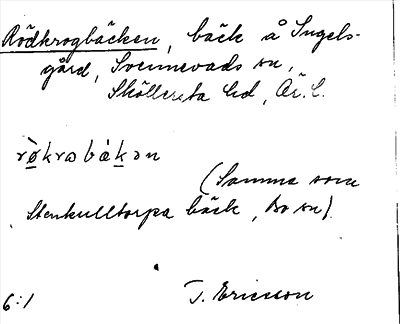 Rödkrogbäcken, bäck å Ingels-
gård, Svennevads sn,
Sköllersta hd, Ör. l.
rø̀krωbák̠ən
(Samma som
Stenkulltorpa bäck, Bo sn).
6:1 T. Ericsson